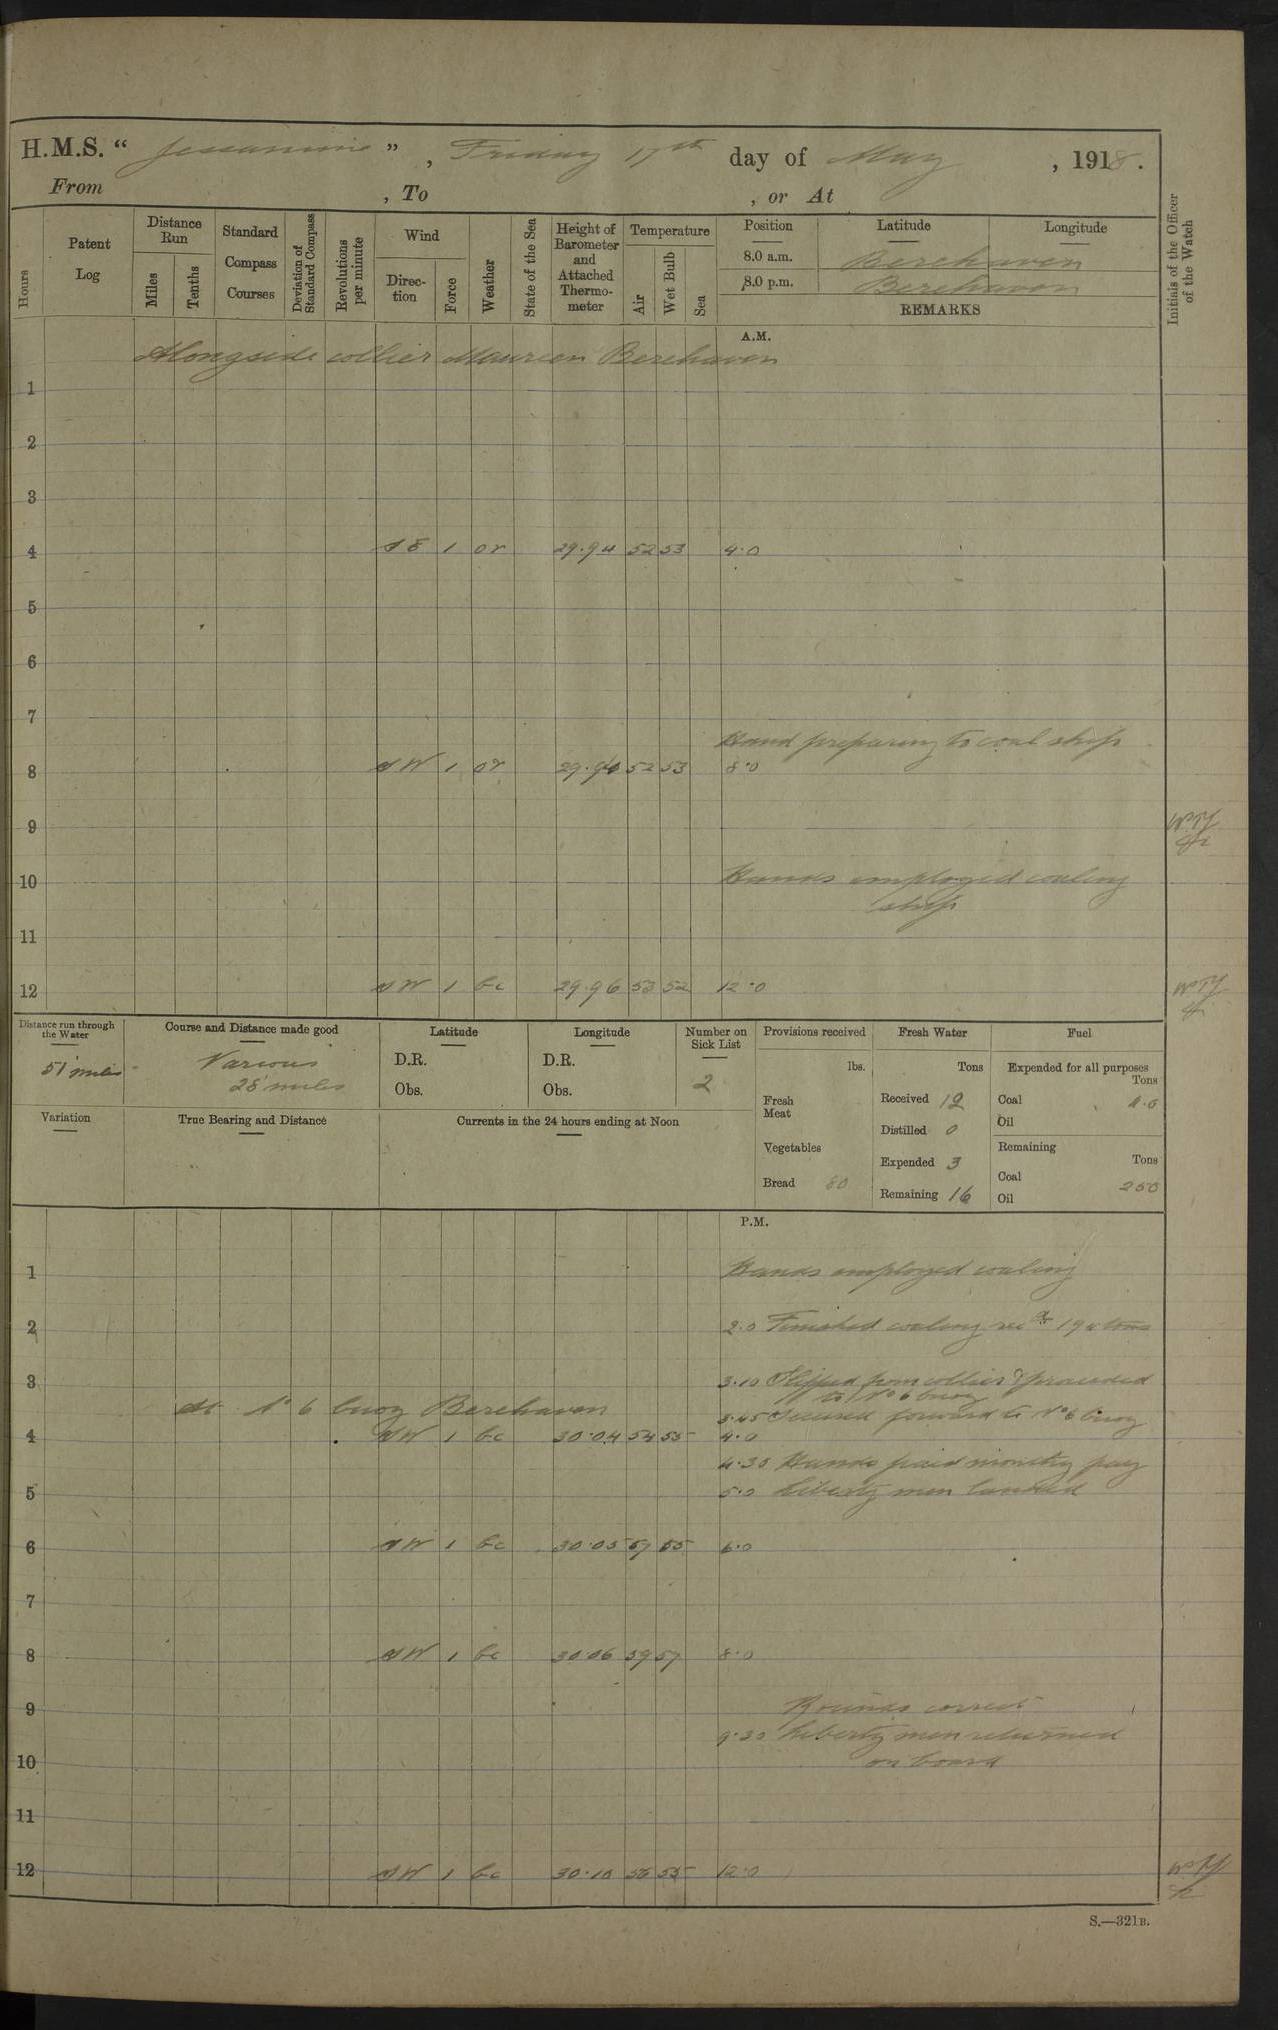 H.M.S. “ Jessamine ” , Friday 17th day of May , 1918.
From , To , or At
Hours
Patent Log
Distance Run
Miles
Tenths
Standard Compass Courses
Deviation of Standard Compass
Revolutions per minute
Wind
Direc-tion
Force
Weather
State of the Sea
Height of Barometer and Attached Thermo-meter
Temperature
Air
Wet Bulb
Sea
Position
Latitude
Longitude
8.0 a.m. Berehaven
8.0 p.m. Berehaven
REMARKS
Initials of the Officer of the Watch
A.M.
Alongside collier Maureen Berehaven
1
2
3
4 SE 1 or 29.94 52 53 4.0
5
6
7
Hand preparing to coal ship
8 SW 1 or 29.96 52 53 8.0
9
10 Hands employed coaling
ship
11
12 SW 1 bc 29.96 53 52 12.0
Distance run through the Water
51 miles
Course and Distance made good
Various
28 miles
Latitude
D.R.
Obs.
Longitude
D.R.
Obs.
Number on Sick List
2
Provisions received
lbs.
Fresh Meat
Vegetables
Bread 80
Fresh Water
Tons
Received 12
Distilled 0
Expended 3
Remaining 16
Fuel
Expended for all purposes
Tons
Coal
Oil
Remaining
Tons
Coal 250
Oil
Variation
True Bearing and Distance
Currents in the 24 hours ending at Noon
P.M.
1 Hands employed coaling
2 2.0 Finished coaling recd 194 tons
3 3.10 Slipped from collier & proceeded
to No 6 buoy
At No 6 buoy Berehaven
3.45 Secured forward to No 6 buoy
4 SW 1 bc 30.04 54 55 4.0
4.30 Hands paid monthly pay
5 5.0 Liberty men landed
6 SW 1 bc 30.05 57 55 6.0
7
8 SW 1 bc 30.06 59 57 8.0
9 Rounds correct
9.30 Liberty men returned
10 on board
11
12 SW 1 bc 30.10 56 55 12.0
S.—321B.